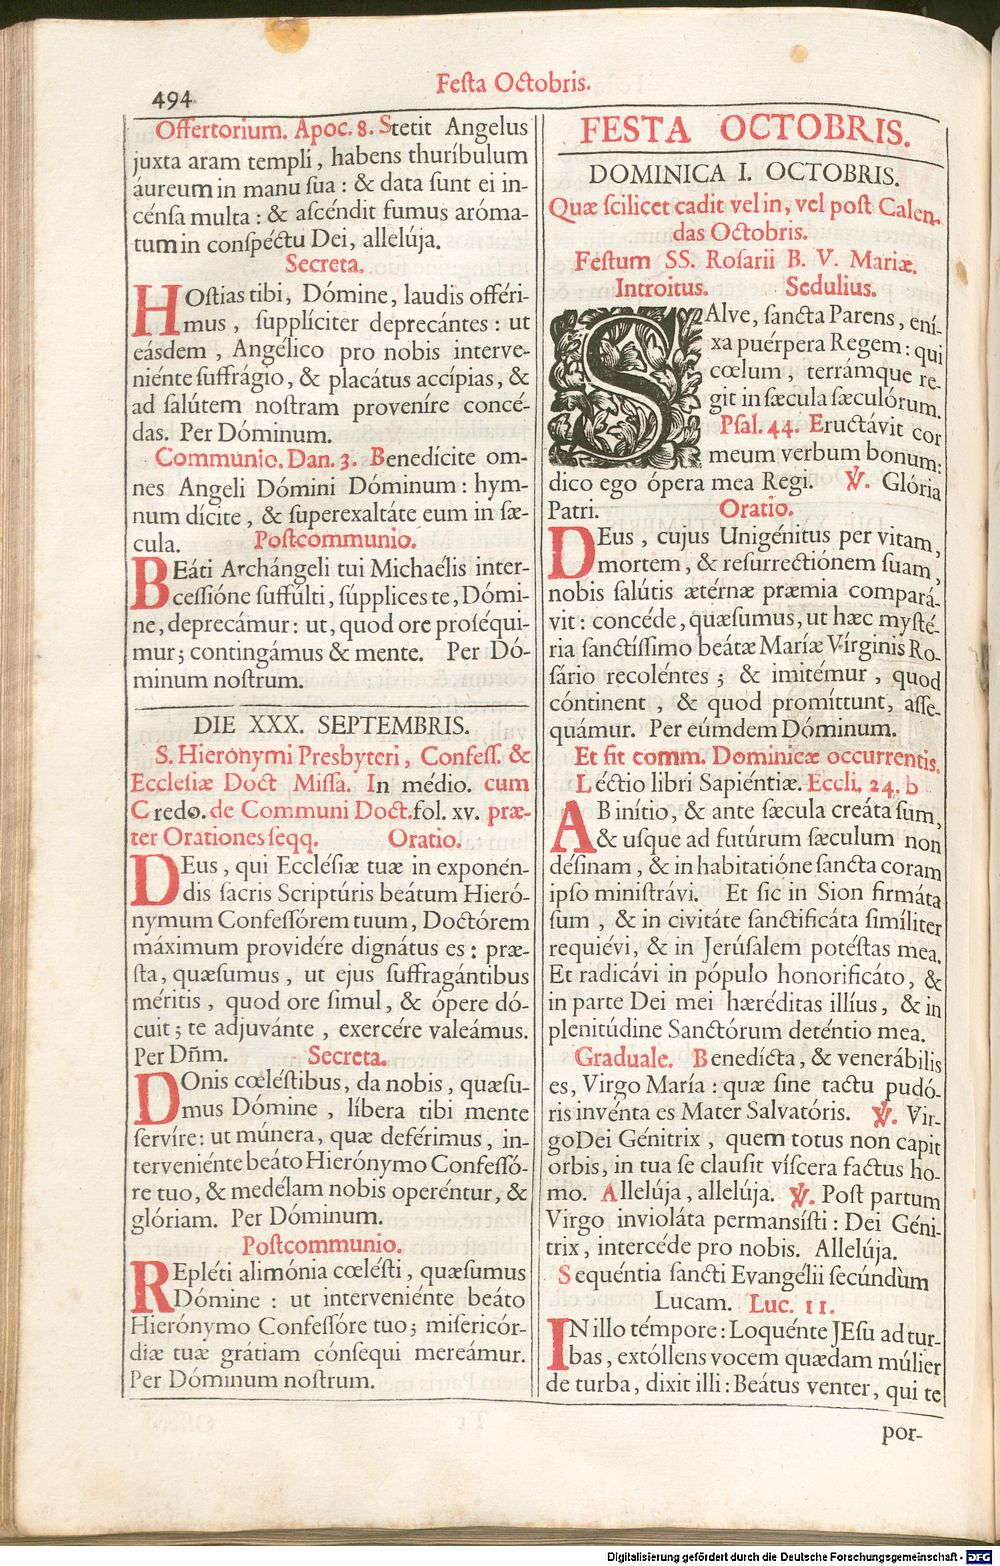 494
Festa Octobris.
Offertorium. Apoc. 8. Stetit Angelus
juxta aram templi, habens thuríbulum
áureum in manu sua: & data sunt ei in-
cénsa multa: & ascéndit fumus aróma-
tum in conspéctu Dei, allelúja.
Secreta.
HOstias tibi, Dómine, laudis offéri-
mus, supplíciter deprecántes: ut
eásdem, Angélico pro nobis interve-
niénte suffrágio, & placátus accípias, &
ad salútem nostram proveníre concé-
das. Per Dóminum.
Communio. Dan. 3. Benedícite om-
nes Angeli Dómini Dóminum: hym-
num dícite, & superexaltáte eum in sæ-
cula. Postcommunio.
BEáti Archángeli tui Michaélis inter-
cessióne suffúlti, súpplices te, Dómi-
ne, deprecámur: ut, quod ore proséqui-
mur; contingámus & mente. Per Dó-
minum nostrum.
DIE XXX. SEPTEMBRIS.
S. Hieronymi Presbyteri, Confess. &
Ecclesiæ Doct Missa. In médio. cum
Credo. de Communi Doct. fol. xv. præ-
ter Orationes seqq. Oratio.
DEus, qui Ecclésiæ tuæ in exponén-
dis sacris Scriptúris beátum Hieró-
nymum Confessórem tuum, Doctórem
máximum providére dignátus es: præ-
sta, quæsumus, ut ejus suffragántibus
méritis, quod ore simul, & ópere dó-
cuit; te adjuvánte, exercére valeámus.
Per Dñm. Secreta.
DOnis cœléstibus, da nobis, quæsu-
mus Dómine, líbera tibi mente
servíre: ut múnera, quæ deférimus, in-
terveniénte beáto Hierónymo Confessó-
re tuo, & medélam nobis operéntur, &
glóriam. Per Dóminum.
Postcommunio.
REpléti alimónia cœlésti, quæsumus
Dómine: ut interveniénte beáto
Hierónymo Confessóre tuo; misericór-
diæ tuæ grátiam cónsequi mereámur.
Per Dóminum nostrum.
FESTA OCTOBRIS.
DOMINICA I. OCTOBRIS.
Quæ scilicet cadit vel in, vel post Calen-
das Octobris.
Festum SS. Rosarii B. V. Mariæ.
Introitus. Sedulius.
SAlve, sancta Parens, ení-
xa puérpera Regem: qui
cœlum, terrámque re-
git in sæcula sæculórum.
Psal. 44. Eructávit cor
meum verbum bonum:
dico ego ópera mea Regi. ℣. Glória
Patri. Oratio.
DEus, cujus Unigénitus per vitam,
mortem, & resurrectiónem suam,
nobis salútis ætérnæ præmia compará-
vit: concéde, quæsumus, ut hæc mysté-
ria sanctíssimo beátæ Maríæ Vírginis Ro-
sário recoléntes; & imitémur, quod
cóntinent, & quod promíttunt, asse-
quámur. Per eúmdem Dóminum.
Et fit comm. Dominicæ occurrentis.
Léctio libri Sapiéntiæ. Eccli. 24. b
AB inítio, & ante sæcula creáta sum,
& usque ad futúrum sæculum non
désinam, & in habitatióne sancta coram
ipso ministrávi. Et sic in Sion firmáta
sum, & in civitáte sanctificáta simíliter
requiévi, & in Jerúsalem potéstas mea.
Et radicávi in pópulo honorificáto, &
in parte Dei mei hæréditas illíus, & in
plenitúdine Sanctórum deténtio mea.
Graduale. Benedícta, & venerábilis
es, Virgo María: quæ sine tactu pudó-
ris invénta es Mater Salvatóris. ℣. Vir-
go Dei Génitrix, quem totus non capit
orbis, in tua se clausit víscera factus ho-
mo. Allelúja, allelúja. ℣. Post partum
Virgo invioláta permansísti: Dei Géni-
trix, intercéde pro nobis. Allelúja.
Sequéntia sancti Evangélii secúndùm
Lucam. Luc. 11.
IN illo témpore: Loquénte JEsu ad tur-
bas, extóllens vocem quædam múlier
de turba, dixit illi: Beátus venter, qui te
por-
Digitalisierung gefördert durch die Deutsche Forschungsgemeinschaft - DFG